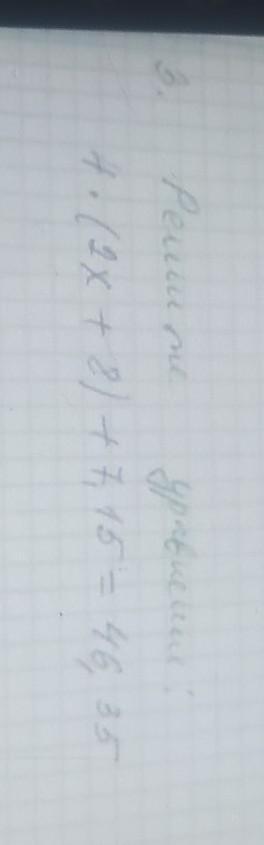 3. Решите уравнение:
4 · (2x + 8) + 7,15 = 46,35